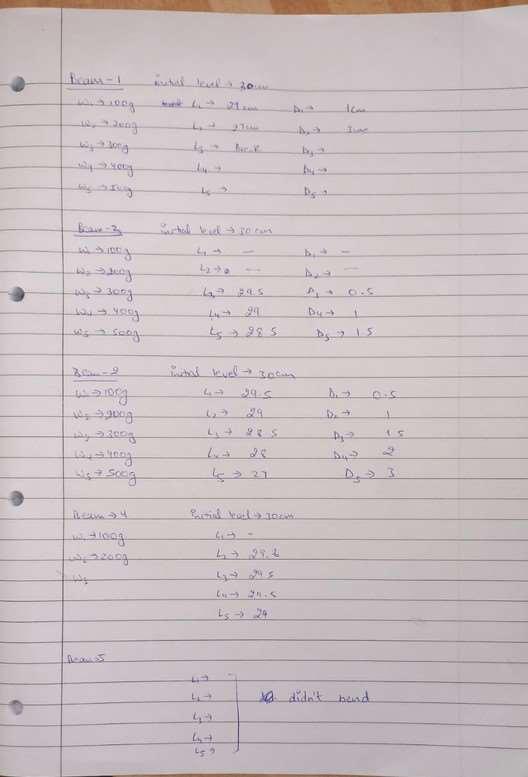 Beam-1 initial level → 30cm
W₁ → 100g L₁ → 29cm D₁ → 1cm
W₂ → 200g L₂ → 27cm D₂ → 3cm
W₃ → 300g L₃ → D₃ →
W₄ → 400g L₄ → D₄ →
W₅ → 500g L₅ → D₅ →
Beam-3 initial level → 30cm
W₁ → 100g L₁ → — D₁ → —
W₂ → 200g L₂ → — D₂ → —
W₃ → 300g L₃ → 29.5 D₃ → 0.5
W₄ → 400g L₄ → 29 D₄ → 1
W₅ → 500g L₅ → 28.5 D₅ → 1.5
Beam-2 initial level → 30cm
W₁ → 100g L₁ → 29.5 D₁ → 0.5
W₂ → 200g L₂ → 29 D₂ → 1
W₃ → 300g L₃ → 28.5 D₃ → 1.5
W₄ → 400g L₄ → 28 D₄ → 2
W₅ → 500g L₅ → 27 D₅ → 3
Beam → 4 Initial level → 30cm
W₁ → 100g L₁ → -
W₂ → 200g L₂ →
W₃ L₃ → 29.5
L₄ →
L₅ → 29
Beam-5
L₁ →
L₂ → didn't bend
L₃ →
L₄ →
L₅ →